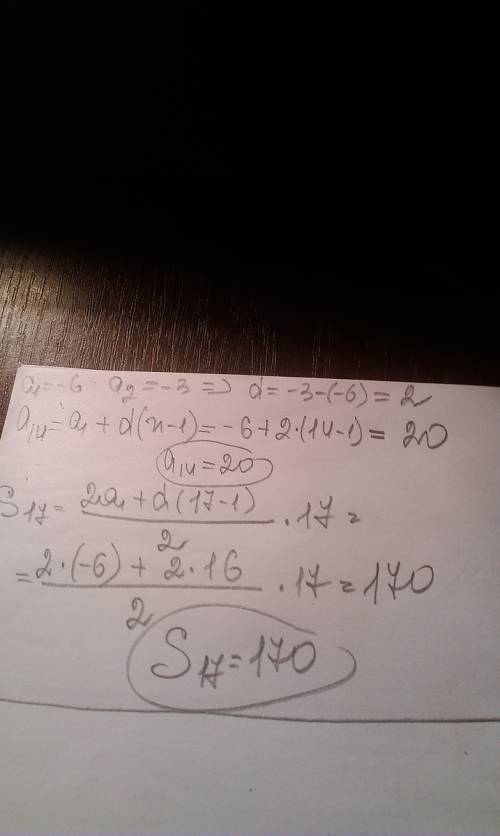 a₁=-6 a₂=-3 => d=-3-(-6)=2
a₁₄=a₁+d(n-1)=-6+2·(14-1)=20
a₁₄=20
S₁₇= (2a₁+d(17-1))/2 ·17=
= (2·(-6)+2·16)/2 ·17=170
S₁₇=170